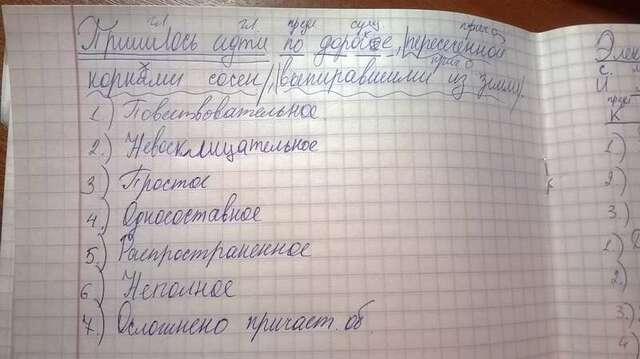 гл. гл. предл сущ. прич.
Пришлось идти по дороге, |пересеченной
прич
корнями сосен/,|выпиравшими из земли|.
1.) Повествовательное
2.) Невосклицательное
3.) Простое
4.) Односоставное
5.) Распространенное
6) Неполное
7.) Осложнено причаст. об.
Элек
с.
и
предл
к
1.)
2)
3.)
1.)
2.)
3.)
4)